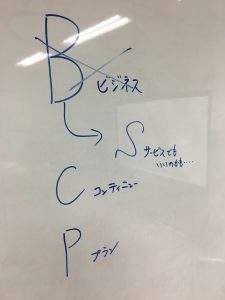 B ビジネス
S サービスでも
いいのかも....
C コンティニュー
P プラン